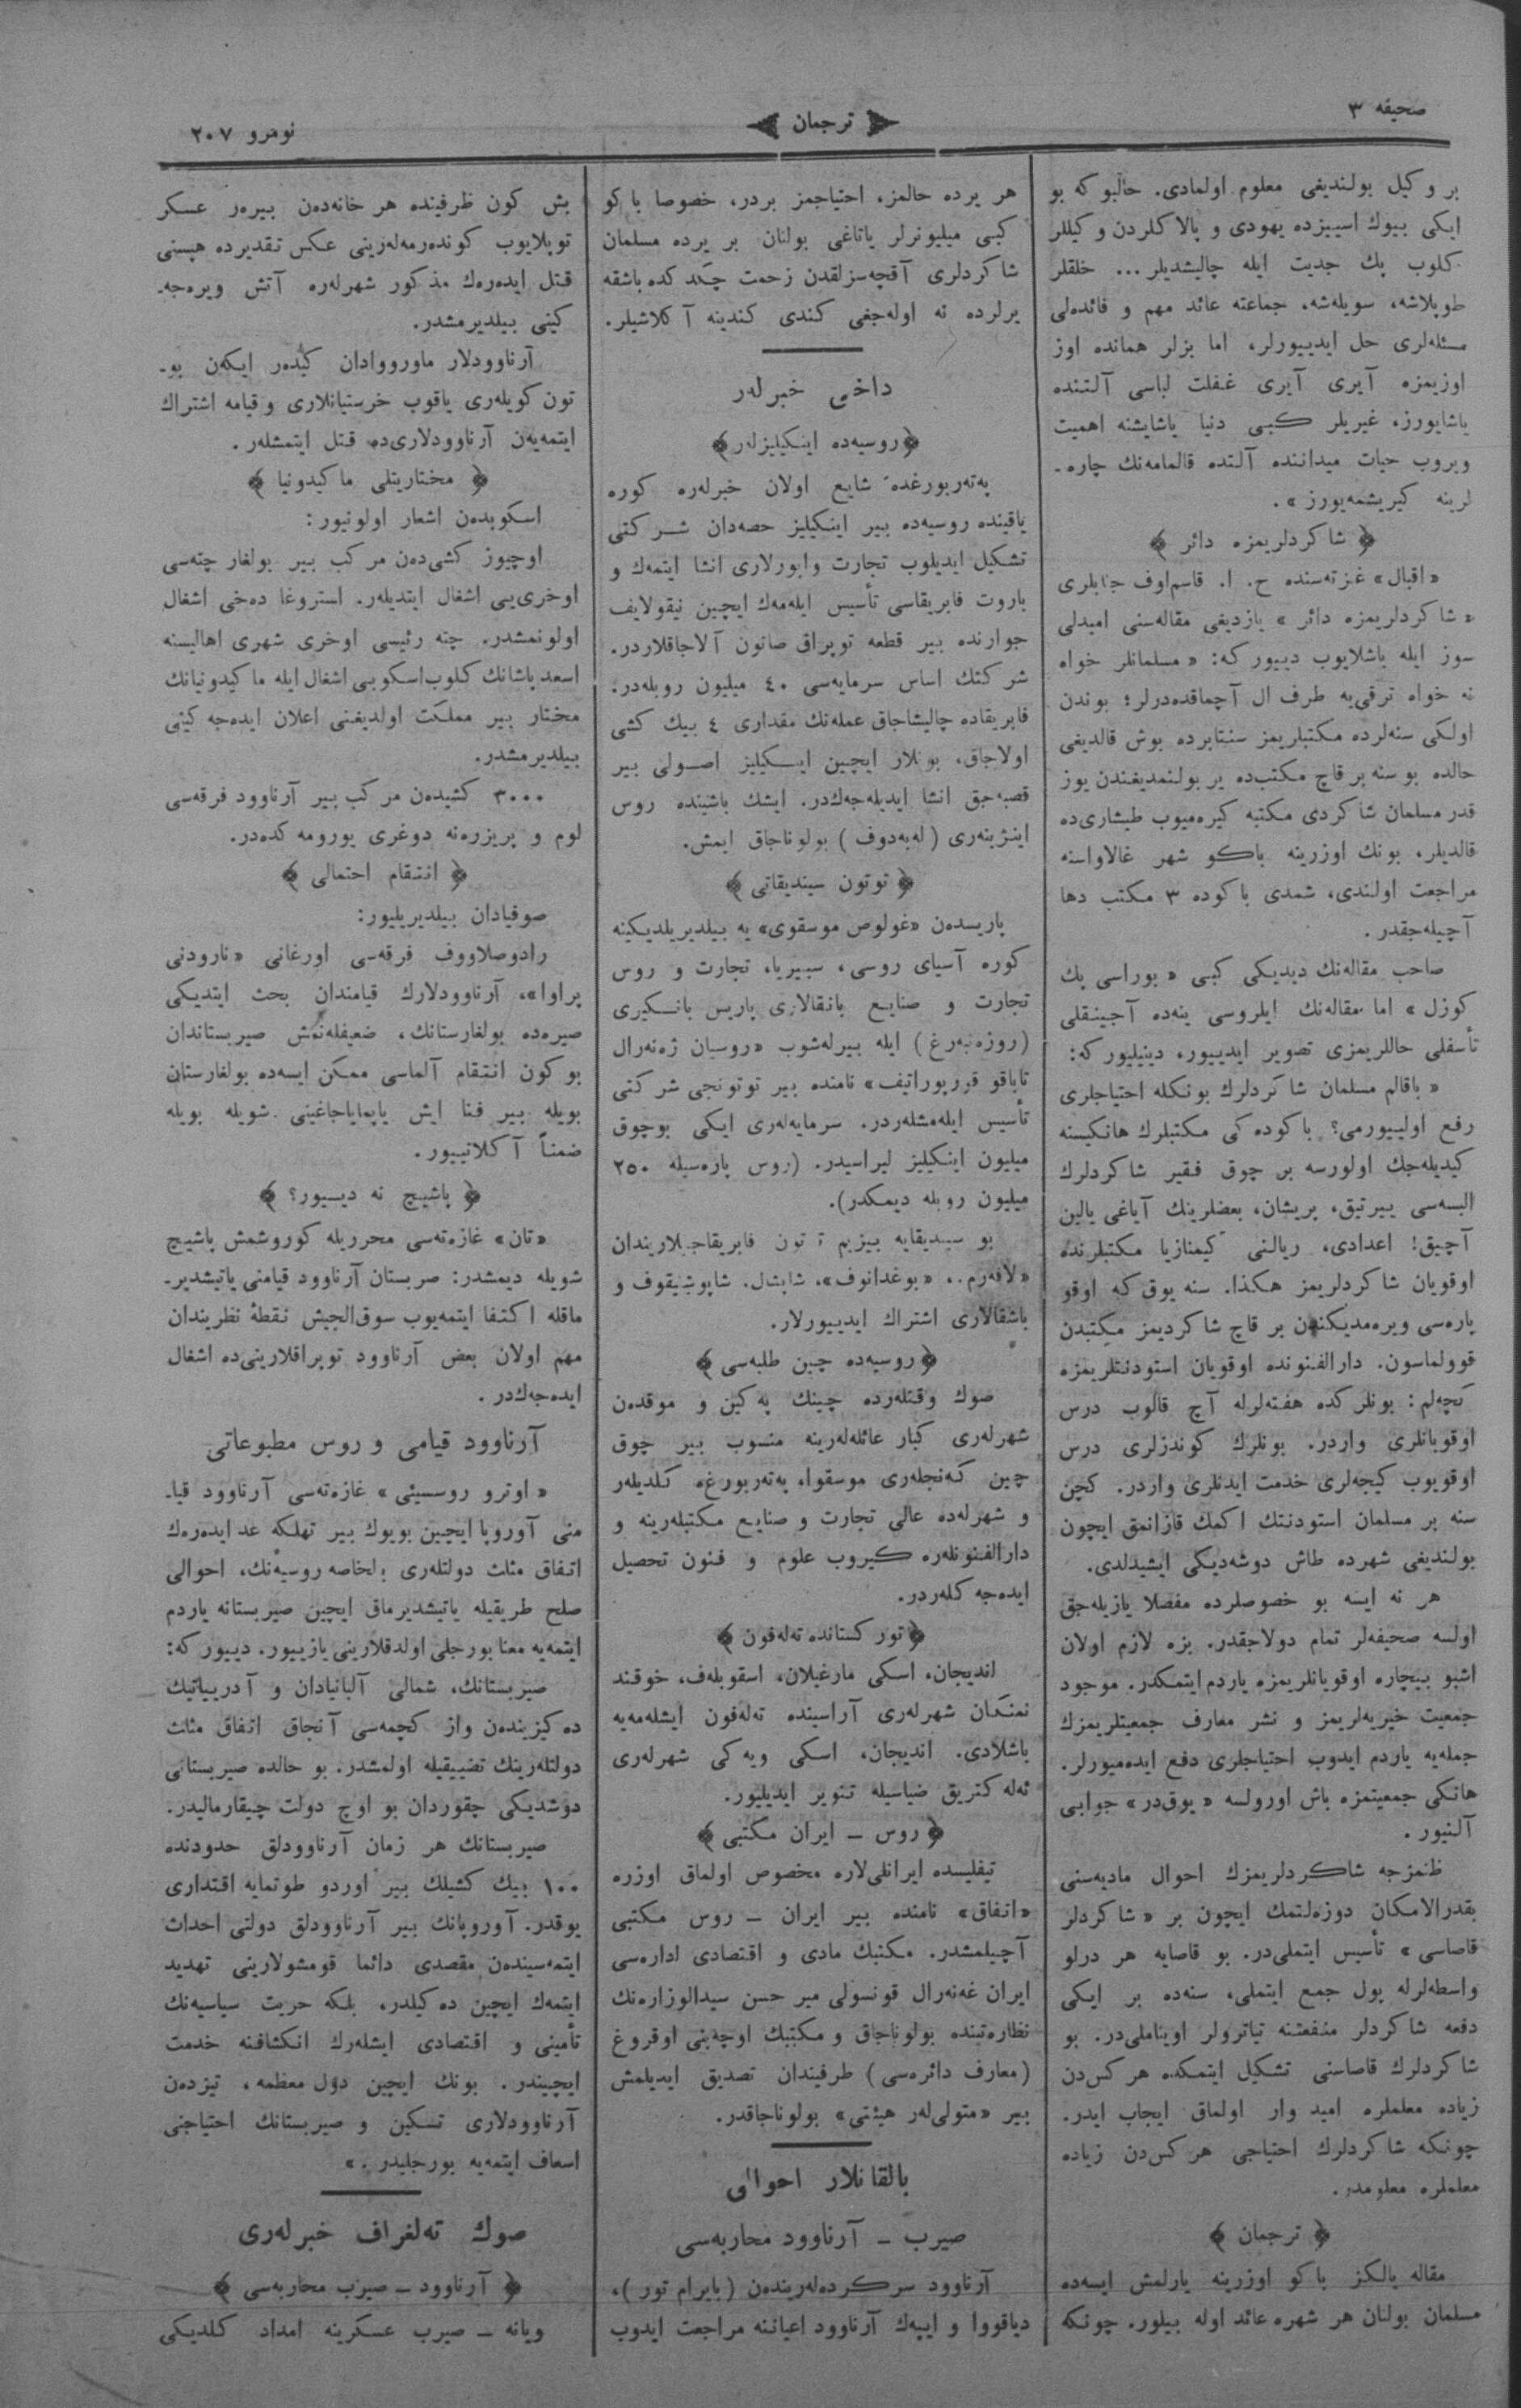 صحیفه ٣
ترجمان
نومرو ٢٠٧
بر وكیل بولندیغی معلوم اولمادی. حالبوكه بو
ایكی بیوك اسییزده یهودی و پالاكلردن وكیللر
كلوب پك جدیت ایله چالیشدیلر... خلقلر
طوپلاشه، سویله‌شه، جماعته عائد مهم و فائده‌لی
مسئله‌لری حل ایدییورلر، اما بزلر همانده اوز
اوزیمزه آیری آیری غفلت لباسی آلتنده
یاشایورز، غیریلر كبی دنیا یاشایشنه اهمیت
ویروب حیات میداننده آلتده قالمامه‌نك چاره‌ـ
لرینه كیریشمه‌یورز».
﴿ شاكردلریمزه دائر ﴾
«اقبال» غزته‌سنده ح. ا. قاسم‌اوف جنابلری
«شاكردلریمزه دائر» یازدیغی مقاله‌سنی امیدلی
سوز ایله باشلایوب دییوركه: «مسلمانلر خواه
نه خواه ترقی‌یه طرف ال آچماقده‌درلر؛ بوندن
اولكی سنه‌لرده مكتبلریمز سنتابرده بوش قالدیغی
حالده بو سنه بر قاچ مكتب‌ده یر بولنمدیغندن یوز
قدر مسلمان شاكردی مكتبه كیره‌میوب طیشاری‌ده
قالدیلر، بونك اوزرینه باكو شهر غالاواسنه
مراجعت اولندی، شمدی باكوده ٣ مكتب دها
آچیله‌جقدر.
صاحب مقاله‌نك دیدیكی كبی «بوراسی پك
كوزل» اما مقاله‌نك ایلروسی ینه‌ده آجینقلی
تأسفلی حاللریمزی تصویر ایدییور، دینیلیوركه:
«باقالم مسلمان شاكردلرك بونكله احتیاجلری
رفع اولییورمی؟ باكوده‌كی مكتبلرك هانكیسنه
كیدیله‌جك اولورسه بر چوق فقیر شاكردلرك
البسه‌سی ییرتیق، پریشان، بعضلرینك آیاغی یالین
آچیق! اعدادی، ریالنی كیمنازیا مكتبلرنده
اوقویان شاكردلریمز هكذا. سنه یوق كه اوقو
پاره‌سی ویره‌مدیكندن بر قاچ شاكردیمز مكتبدن
قوولماسون. دارالفنونده اوقویان استودنتلریمزه
كچه‌لم: بونلركده هفته‌لرله آچ قالوب درس
اوقویانلری واردر. بونلرك كوندزلری درس
اوقویوب كیجه‌لری خدمت ایدنلری واردر. كچن
سنه بر مسلمان استودنتك اكمك قازانمق ایچون
بولندیغی شهرده طاش دوشه‌دیكی ایشیدلدی.
هر نه ایسه بو خصوصلرده مفصلا یازیله‌جق
اولسه صحیفه‌لر تمام دولاجقدر. بزه لازم اولان
اشبو بیچاره اوقویانلریمزه یاردم ایتمكدر. موجود
جمعیت خیریه‌لریمز و نشر معارف جمعیتلریمزك
جمله‌یه یاردم ایدوب احتیاجلری دفع ایده‌میورلر.
هانكی جمعیتمزه باش اورولسه «یوق‌در» جوابی
آلنیور.
ظنمزجه شاكردلریمزك احوال مادیه‌سنی
بقدرالامكان دوزه‌لتمك ایچون بر «شاكردلر
قاصاسی» تأسیس ایتملی‌در. بو قاصایه هر درلو
واسطه‌لرله پول جمع ایتملی، سنه‌ده بر ایكی
دفعه شاكردلر منفعتنه تیاترولر اویناملی‌در. بو
شاكردلرك قاصاسنی تشكیل ایتمكده هركس‌دن
زیاده معلملره امید وار اولماق ایجاب ایدر.
چونكه شاكردلرك احتیاجی هركس‌دن زیاده
معلملره معلومدر.
﴿ ترجمان ﴾
مقاله یالكز باكو اوزرینه یازلمش ایسه‌ده
مسلمان بولنان هر شهره عائد اوله بیلور. چونكه
هر یرده حالمز، احتیاجمز بردر، خصوصا باكو
كبی میلیونرلر یاتاغی بولنان بر یرده مسلمان
شاكردلری آقچه‌سزلقدن زحمت چكدكده باشقه
یرلرده نه اوله‌جغی كندی كندینه آكلاشیلر.
داخی خبرلەر
﴿روسیه‌ده اینكیلیزلەر﴾
پەتەربورغده شایع اولان خبرلەره كوره
یاقینده روسیه‌ده بیر اینكیلیز حصه‌دان شركتی
تشكیل ایدیلوب تجارت واپورلاری انشا ایتمەك و
باروت فابریقاسی تأسیس ایلەمەك ایچین نیقولایف
جوارنده بیر قطعه توپراق صاتون آلاجاقلاردر.
شركتك اساس سرمایه‌سی ٤٠ میلیون روبله‌در.
فابریقاده چالیشاجاق عمله‌نك مقداری ٤ بیك كشی
اولاجاق، بونلار ایچین اینكیلیز اصولی بیر
قصبه‌جق انشا ایدیله‌جەك‌در. ایشك باشینده روس
اینژینەری (لەبەدوف) بولوناجاق ایمش.
﴿توتون سیندیقاتی﴾
پاریسدەن «غولوص موسقوی» یه بیلدیریلدیكینه
كوره آسیای روسی، سبیریا، تجارت و روس
تجارت و صنایع بانقالاری پاریس بانكیری
(روزەنبەرغ) ایله بیرلەشوب «روسیان ژەنەرال
تاباقو قورپوراتیف» نامنده بیر توتونجی شركتی
تأسیس ایلەمشلەردر. سرمایەلەری ایكی بوچوق
میلیون اینكیلیز لیراسیدر. (روس پارەسیله ٢٥٠
میلیون روبله دیمكدر).
بو سیندیقایه بیزیم توتون فابریقاجیلاریندان
«لافەرم»، «بوغدانوف»، شاپشال، شاپوشنیقوف و
باشقالاری اشتراك ایدییورلار.
﴿روسیه‌ده چین طلبه‌سی﴾
صوك وقتلەرده چینك پەكین و موقدەن
شهرلەری كبار عائله‌لەرینه منسوب بیر چوق
چین كەنجلەری موسقوا، پەتەربورغه كلدیلەر
و شهرلەده عالی تجارت و صنایع مكتبلەرینه و
دارالفنونلەره كیروب علوم و فنون تحصیل
ایده‌جەكلەردر.
﴿توركستانده تەلەفون﴾
اندیجان، اسكی مارغیلان، اسقوبلەف، خوقند
نمنكان شهرلەری آراسینده تەلەفون ایشلەمەیه
باشلادی. اندیجان، اسكی ویەكی شهرلەری
ئەلەكتریق ضیاسیله تنویر ایدیلیور.
﴿روس ــ ایران مكتبی﴾
تیفلیسده ایرانلی‌لاره مخصوص اولماق اوزره
«اتفاق» نامنده بیر ایران ــ روس مكتبی
آچیلمشدر. مكتبك مادی و اقتصادی اداره‌سی
ایران غەنەرال قونسولی میر حسن سیدالوزاره‌نك
نظارەتینده بولوناجاق و مكتبك اوچەبنی اوقروغ
(معارف دائره‌سی) طرفیندان تصدیق ایدیلمش
بیر «متولی‌لەر هیئتی» بولوناجاقدر.
بالقانلار احوالی
صیرب ــ آرناوود محاربه‌سی
آرناوود سركرده‌لەریندەن (بایرام تور)،
دیاقووا و ایپەك آرناوود اعیاننه مراجعت ایدوب
بش كون ظرفینده هر خانه‌دەن بیرەر عسكر
توپلایوب كوندەرمەلەرینی عكس تقدیرده هپسنی
قتل ایدەرەك مذكور شهرلەره آتش ویره‌جه‌ـ
كینی بیلدیرمشدر.
آرناوودلار ماوروواد‌ان كیدەر ایكەن بوـ
تون كویلەری یاقوب خرستیانلاری و قیامه اشتراك
ایتمەیەن آرناوودلاری‌ده قتل ایتمشلەر.
﴿ مختاریتلی ماكیدونیا ﴾
اسكوبدەن اشعار اولونیور:
اوچیوز كشی‌دەن مركب بیر بولغار چته‌سی
اوخری‌یی اشغال ایتدیلەر. استروغا دەخی اشغال
اولونمشدر. چته رئیسی اوخری شهری اهالیسنه
اسعد پاشانك كلوب اسكوبی اشغال ایله ماكیدونیانك
مختار بیر مملكت اولدیغنی اعلان ایده‌جه كینی
بیلدیرمشدر.
٣٠٠٠ كشیدەن مركب بیر آرناوود فرقه‌سی
لوم و پریزرەنه دوغری یورومه كده‌در.
﴿ انتقام احتمالی ﴾
صوفیادان بیلدیریلیور:
رادوصلاووف فرقه‌سی اورغانی «نارودنی
پراوا»، آرناوودلارك قیامندان بحث ایتدیكی
صیره‌ده بولغارستانك، ضعیفلەنمش صیربستاندان
بو كون انتقام آلماسی ممكن ایسه‌ده بولغارستان
بویله بیر فنا ایش یاپمایاجاغینی شویله بویله
ضمناً آكلاتییور.
﴿ پاشیچ نه دییور؟ ﴾
«تان» غازەتەسی محرریله كوروشمش پاشیچ
شویله دیمشدر: صربستان آرناوود قیامنی یاتیشدیرـ
ماقله اكتفا ایتمەیوب سوق‌الجیش نقطهٔ نظریندان
مهم اولان بعض آرناوود توپراقلارینی‌ده اشغال
ایده‌جەك‌در.
آرناوود قیامی و روس مطبوعاتی
«اوترو روسسیئی» غازەتەسی آرناوود قیاـ
منی آوروپا ایچین بویوك بیر تهلكه عد ایدەرەك
اتفاق مثلث دولتلەری بالخاصه روسیه‌نك، احوالی
صلح طریقیله یاتیشدیرماق ایچین صیربستانه یاردم
ایتمەیه معنا بورجلی اولدقلارینی یازییور. دییوركه:
صیربستانك، شمالی آلبانیادان و آدریاتیك
ده كیزیندەن واز كچمەسی آنجاق اتفاق مثلث
دولتلەرینك تضییقیله اولمشدر. بو حالده صیربستانی
دوشدیكی چقوردان بو اوچ دولت چیقارمالیدر.
صیربستانك هر زمان آرناوودلق حدودنده
١٠٠ بیك كشیلك بیر اوردو طوتمایه اقتداری
یوقدر. آوروپانك بیر آرناوودلق دولتی احداث
ایتمەسیندەن مقصدی دائما قومشولارینی تهدید
ایتمەك ایچین دەكیلدر، بلكه حریت سیاسیه‌نك
تأمینی و اقتصادی ایشلەرك انكشافنه خدمت
ایچیندر. بونك ایچین دول معظمه، تیزدەن
آرناوودلاری تسكین و صیربستانك احتیاجنی
اسعاف ایتمەیه بورجلیدر.»
صوك تەلغراف خبرلەری
﴿ آرناوود ــ صیرب محاربه‌سی ﴾
ویانه ــ صیرب عسكرینه امداد كلدیكی